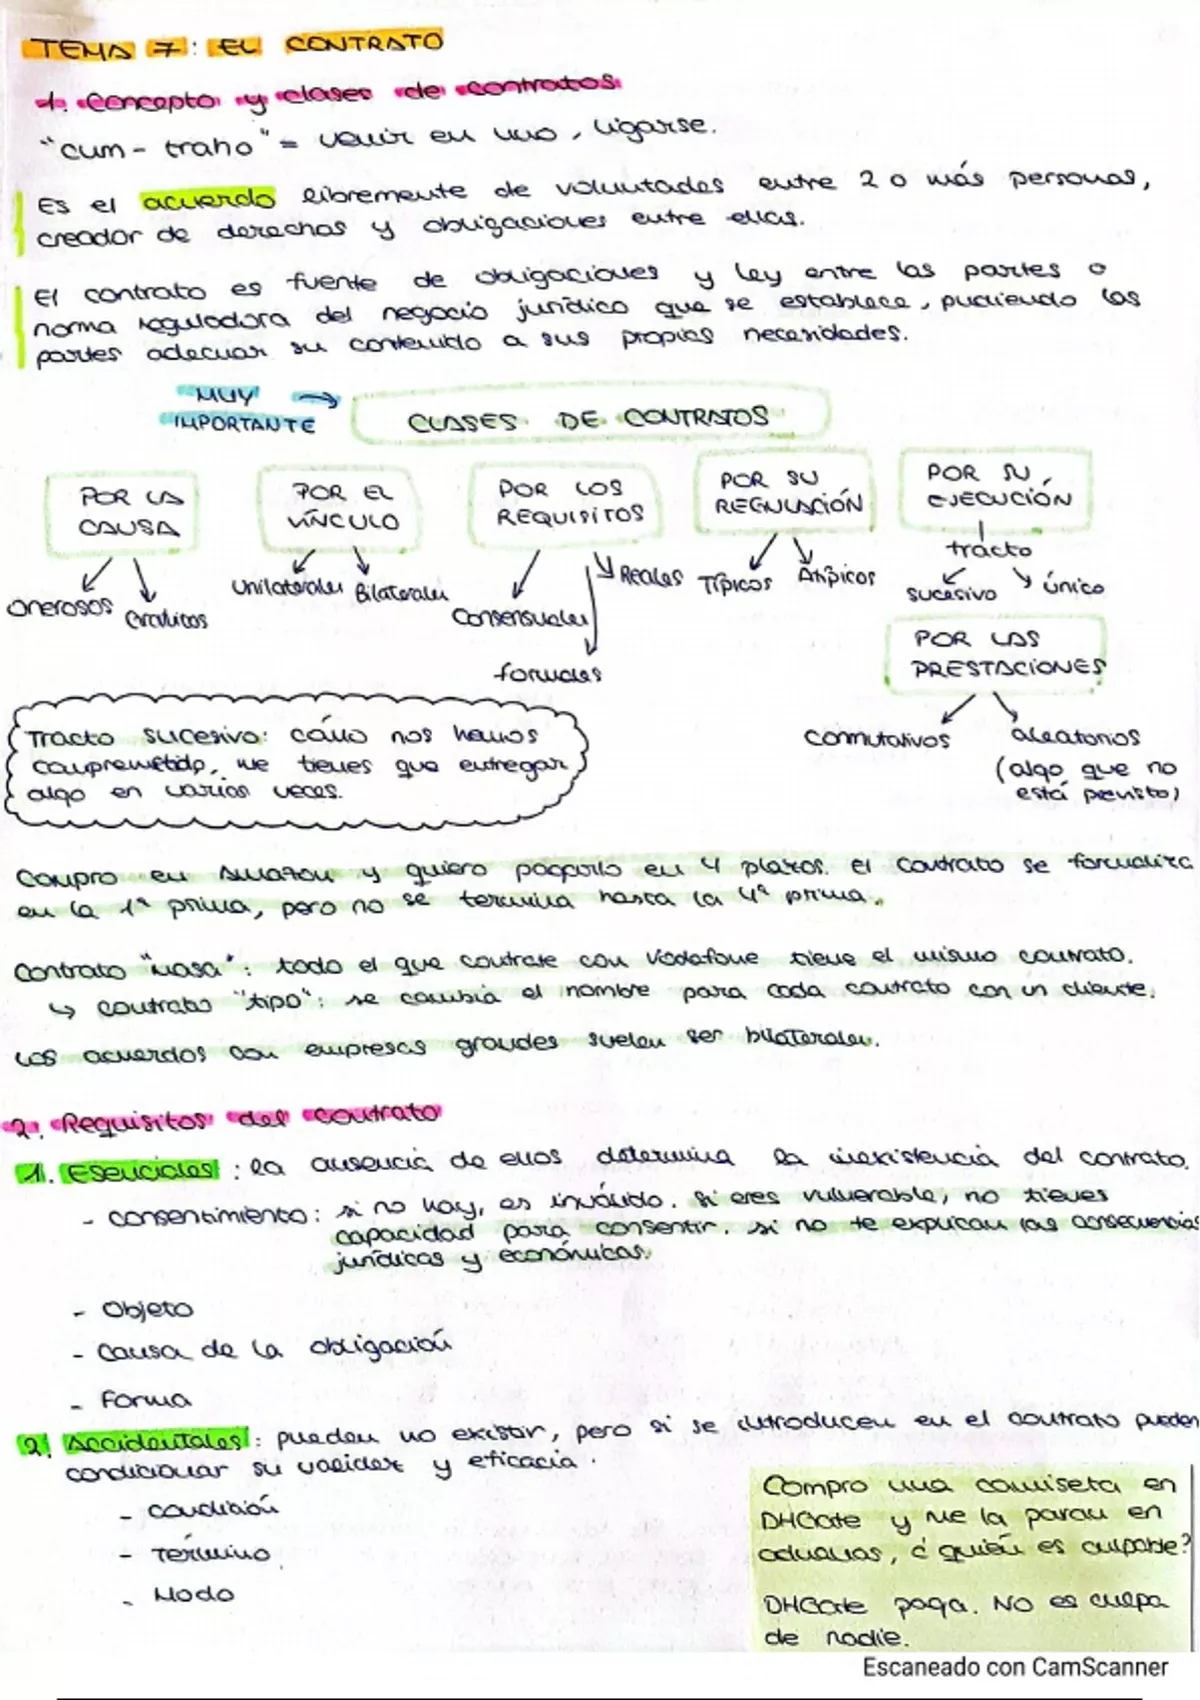 TEMA 7: EL CONTRATO
1. Concepto y clases de contratos.
"cum-traho" = venir en uno, ligarse.
Es el acuerdo libremente de voluntades entre 2 o más personas,
creador de derechos y obligaciones entre ellas.
El contrato es fuente de obligaciones y ley entre las partes o
norma reguladora del negocio jurídico que se establece, pudiendo las
partes adecuar su contenido a sus propias necesidades.
MUY IMPORTANTE →
CLASES DE CONTRATOS
POR LA CAUSA
Onerosos
Gratuitos
POR EL VÍNCULO
Unilaterales
Bilaterales
POR LOS REQUISITOS
Consensuales
formales
Reales
POR SU REGULACIÓN
Típicos
Atípicos
POR SU EJECUCIÓN
tracto
sucesivo
único
POR LAS PRESTACIONES
Conmutativos
aleatorios
(algo que no
está previsto)
Tracto sucesivo: cómo nos hemos
comprometido, me tienes que entregar
algo en varias veces.
Compro en Amazon y quiero pagarlo en 4 plazos. El contrato se formaliza
en la 1ª prima, pero no se termina hasta la 4ª prima.
Contrato "masa": todo el que contrate con Vodafone tiene el mismo contrato.
↳ contrato "tipo": se cambia el nombre para cada contrato con un cliente.
Los acuerdos con empresas grandes suelen ser bilaterales.
2. Requisitos del contrato
1. Esenciales: la ausencia de ellos determina la inexistencia del contrato.
- consentimiento: si no hay, es inválido. si eres vulnerable, no tienes
capacidad para consentir. si no te explican las consecuencias
jurídicas y económicas.
- Objeto
- Causa de la obligación
- Forma
2. Accidentales: pueden no existir, pero si se introducen en el contrato pueden
condicionar su validez y eficacia.
- Condición
- Término
- Modo
Compro una camiseta en
DHGate y me la paran en
aduanas, ¿quién es culpable?
DHGate paga. No es culpa
de nadie.
Escaneado con CamScanner